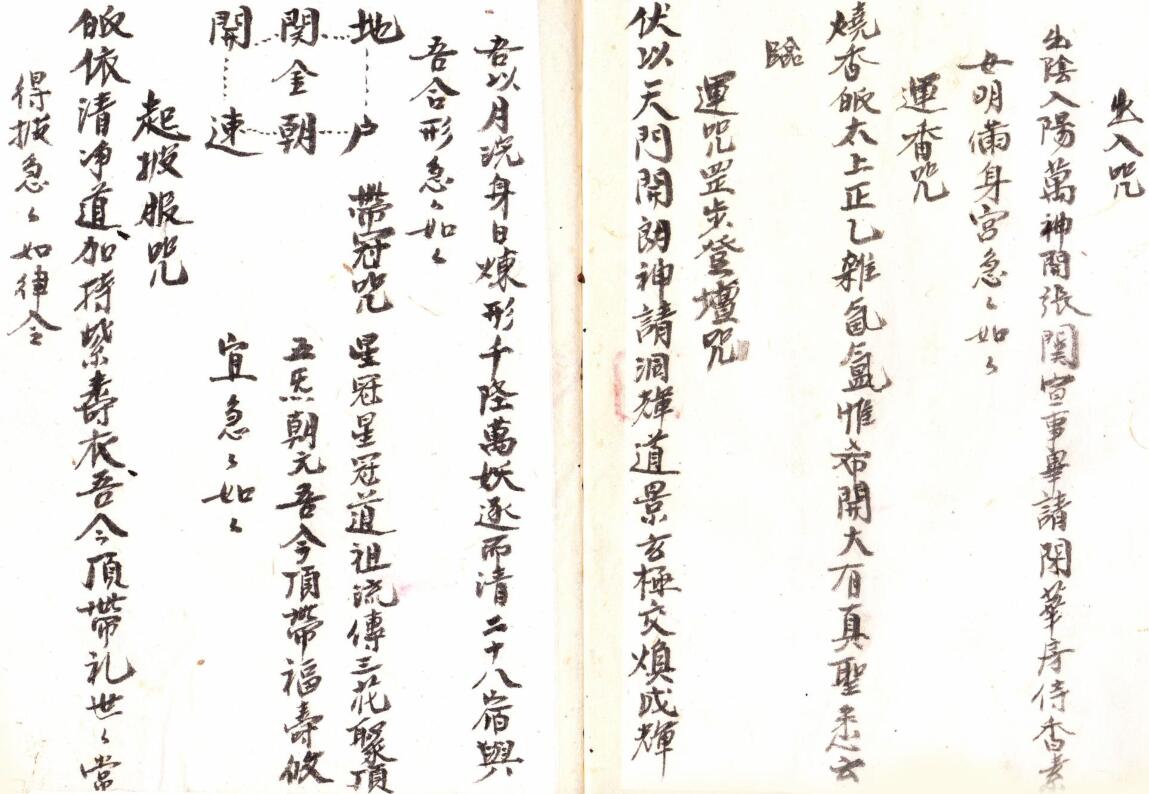 出入咒
出陰入陽萬神開張関宣事畢請閑華房侍香素
女明備身宮急〻如〻
運香咒
燒香皈太上正乙雜氤氳惟希開大有真聖悉云
臨
運咒罡步登壇咒
伏以天門開朗神請洞輝道景玄極交煥成輝
吾以月洗身日煉形千陸萬妖逐而清二十八宿與
吾合形急〻如〻
地户
関金朝
開速
帶冠咒
星冠星冠道祖流傳三花聚頂
五炁朝元吾今頂帶福壽攸
宜急〻如〻
起披服咒
皈依清净道加持紫壽衣吾今頂帶礼世〻當
得披急〻如律令